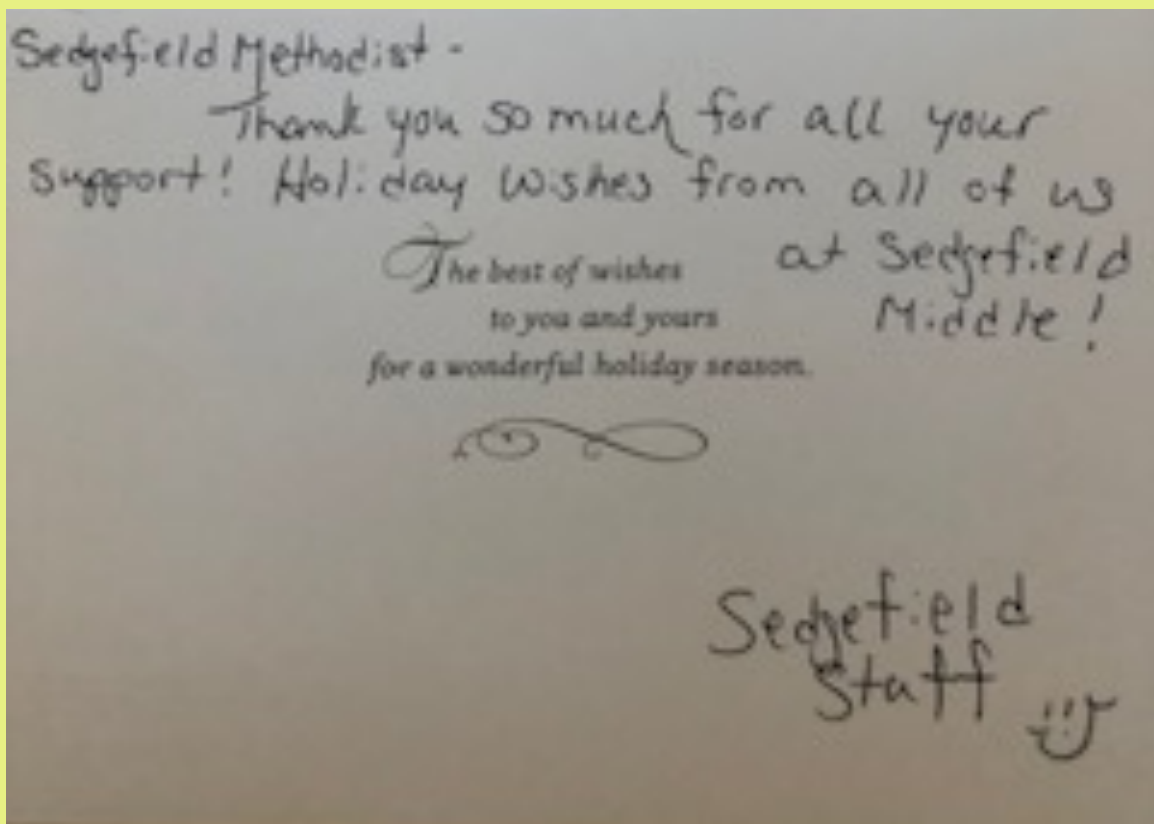 Sedgefield Methodist -
Thank you so much for all your
support! Holiday Wishes from all of us
at Sedgefield
Middle!
The best of wishes
to you and yours
for a wonderful holiday season.
Sedgefield
Staff